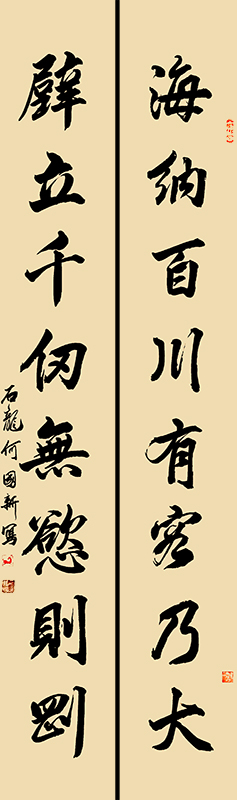 海納百川有容乃大
壁立千仞無慾則剛
石龍何國新寫